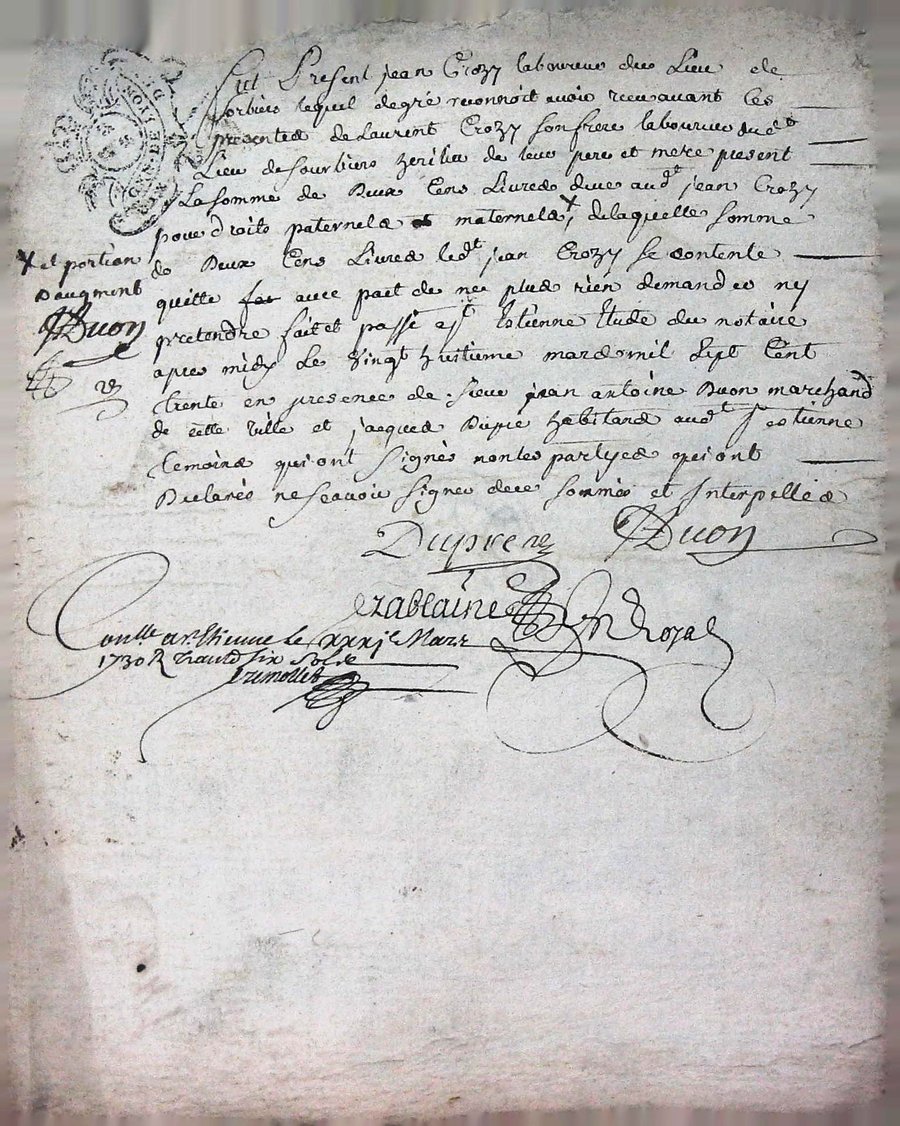 Fut Present jean Crozy laboureur du Lieu de
Sorbiers lequel degré reconnoit avoir receu avant Ces
presentes de Laurent Crozy son frere laboureur dud^t
Lieu de Sourliers heritier de leur pere et mere present
La somme de Deux Cens Livres due aud^t jean Crozy
pour droits paternels et maternels x, de laquelle somme
x et portion
D'augment
JBuon
de Deux Cens Livres led^t jean Crozy se contente
quitte avec pact de ne plus rien demander ny
pretendre fait et passé a S^t Estienne Etude du notaire
apres midy Le vingt huitieme mars mil Sept Cent
trente en presence de Sieur jean antoine Buon marchand
de cette ville et jacques Dupre habitans aud^t S^t estienne
temoins qui ont signés non les partyes qui ont
Declarés ne scavoir signer de ce sommés et Interpellés
Dupre JBuon
ezablaine
N^re Royal
Con^lle a S^t Etienne Le xxxj^e Mars
1730 R six sols
Grimollet